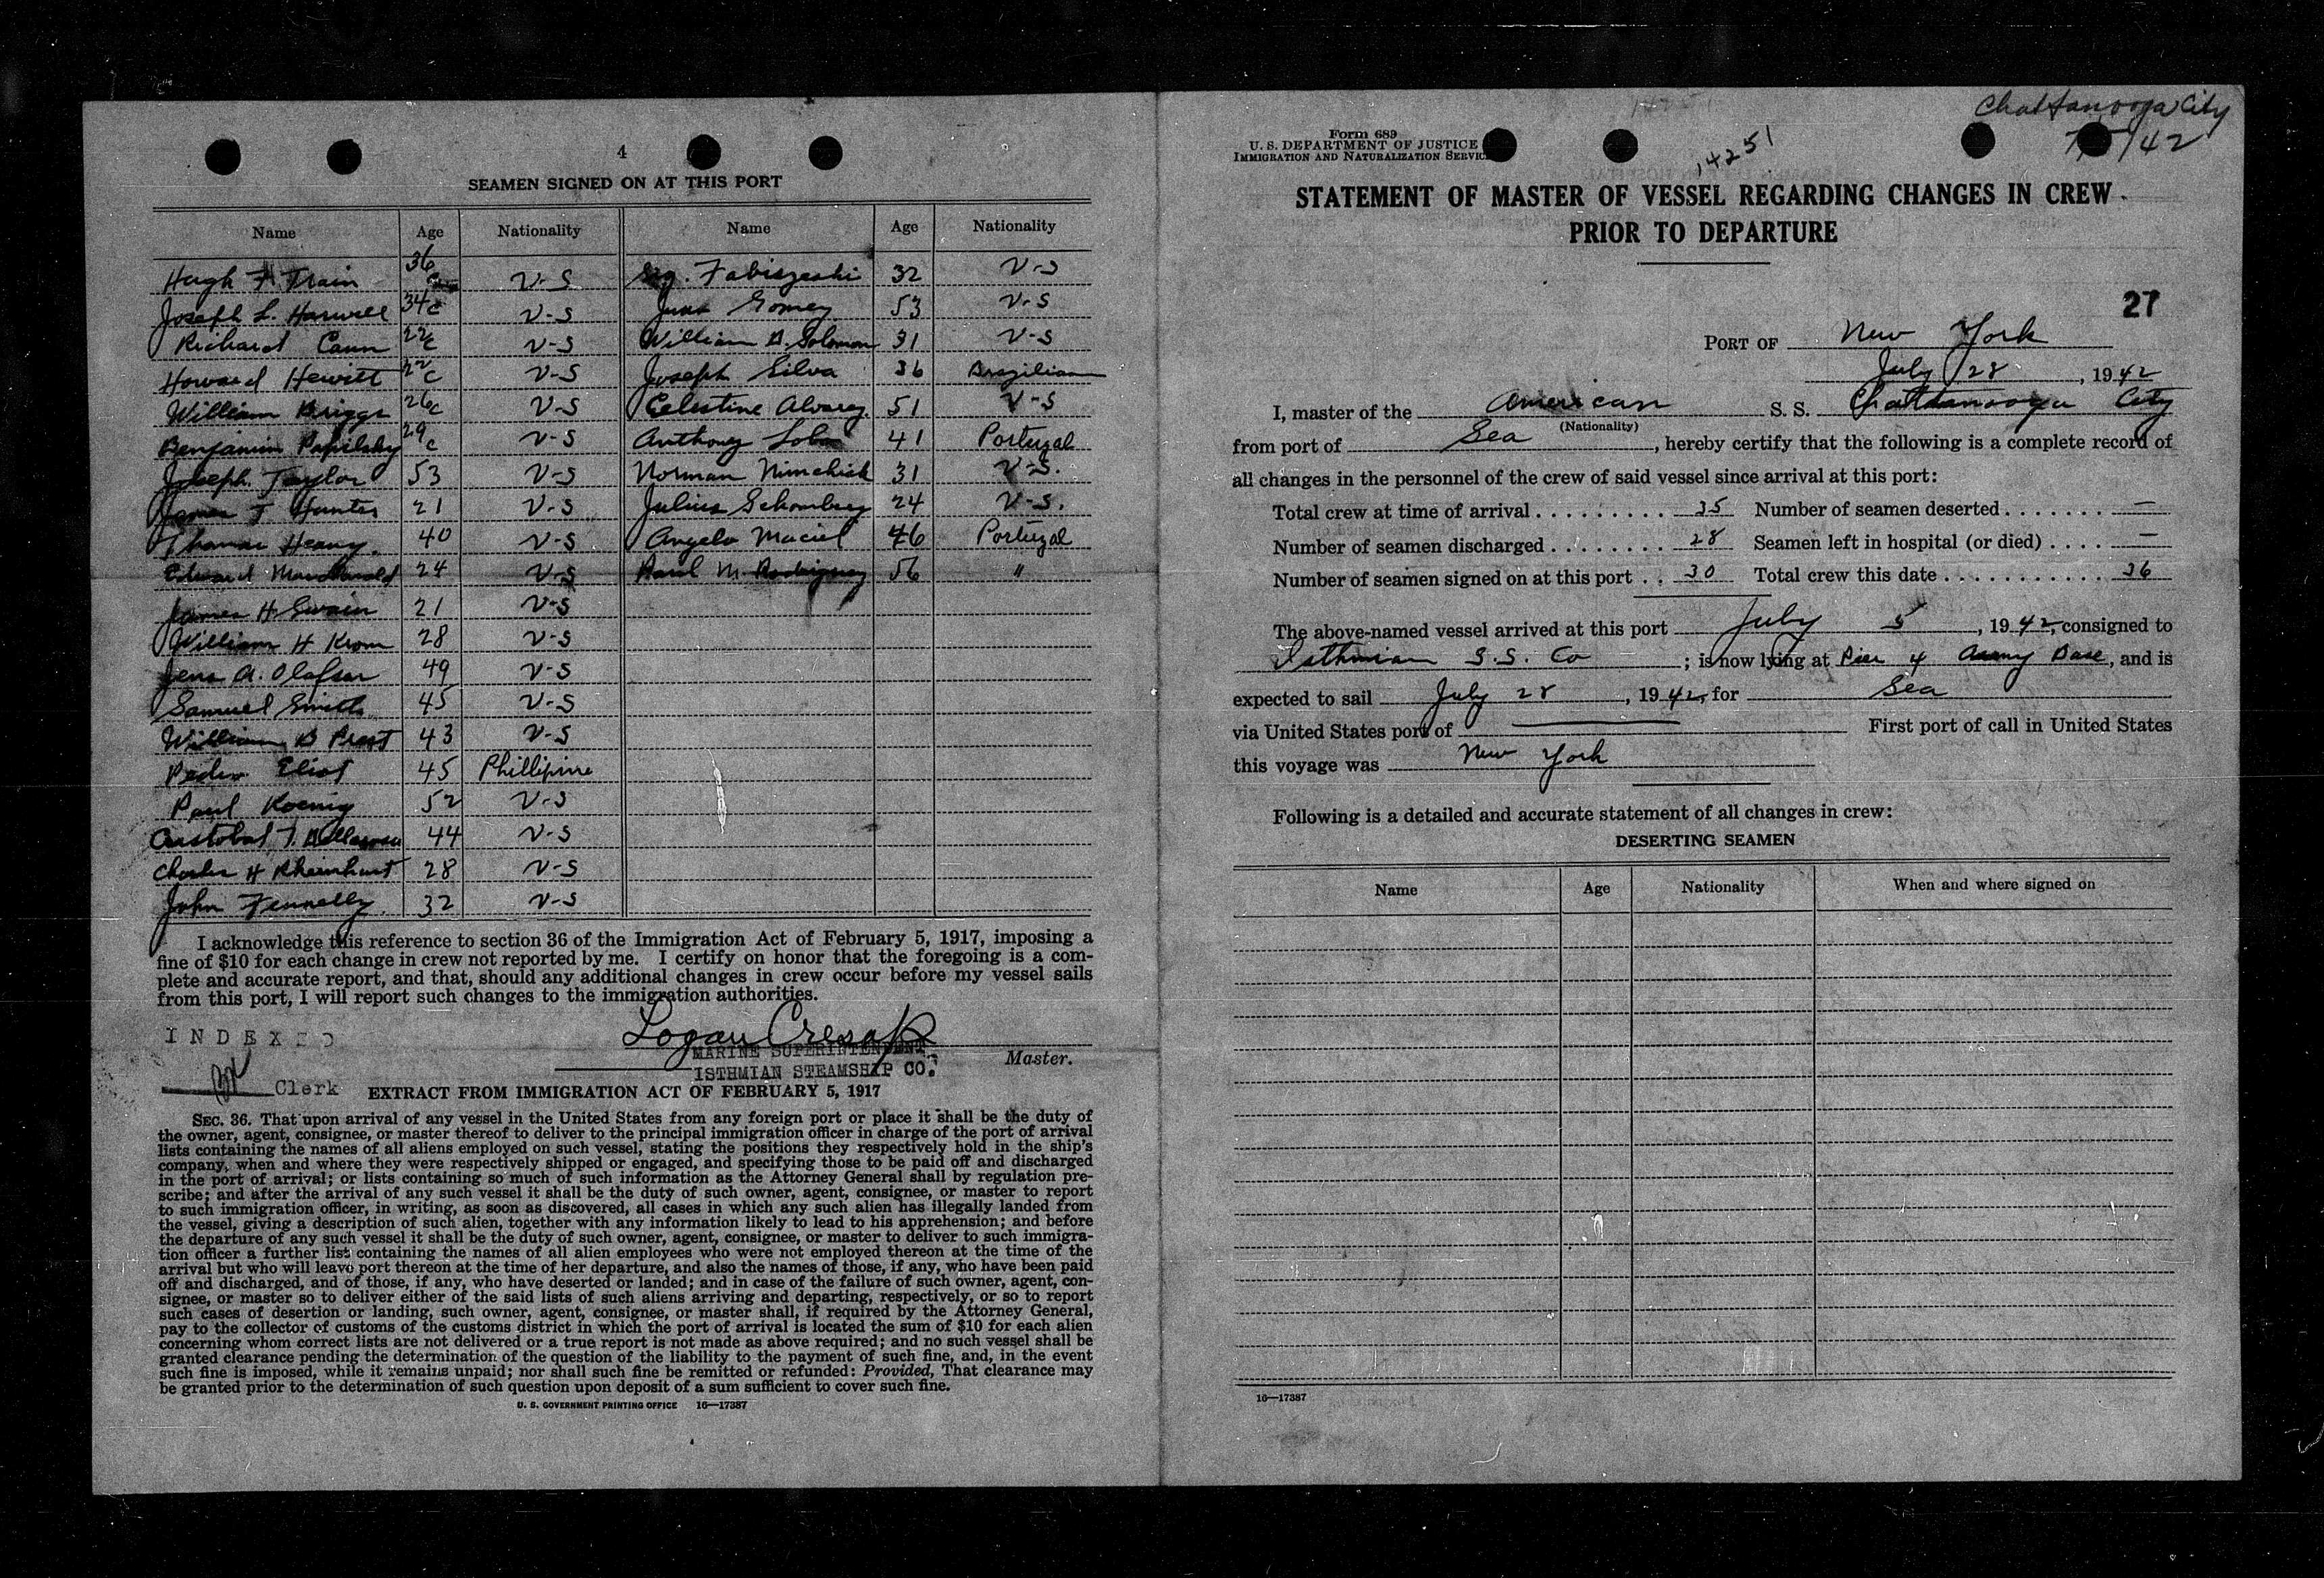 4
SEAMEN SIGNED ON AT THIS PORT
Name Age Nationality Name Age Nationality
Hugh F. Train 36 U-S Sig. Fabiszeski 32 U-S
Joseph L. Harwell 34 c U-S Gomez 53 U-S
Richard Cann 22 c U-S William B. Solomon 31 U-S
Howard Hewitt 22 c U-S Joseph Silva 36 Brazilian
William Briggs 26 c U-S Celestine Alvarez 51 U-S
Benjamin 29 c U-S Anthony Lobo 41 Portugal
Joseph Taylor 53 U-S Norman Nimchick 31 U-S.
James J. Hunter 21 U-S Julius Schomberg 24 U-S.
Thomas Heany. 40 U-S Angelo Maciel 46 Portugal
Edward MacDonald 24 U-S M. Rodriguez 56 "
James H. Swain 21 U-S
William H Krom 28 U-S
Jens A. Olafsen 49 U-S
Samuel Smith 45 U-S
William B 43 U-S
Pedro Eliot 45 Phillipine
Paul Koenig 52 U-S
44 U-S
Charles H Rheinhart 28 U-S
John Fennelly. 32 U-S
I acknowledge this reference to section 36 of the Immigration Act of February 5, 1917, imposing a
fine of $10 for each change in crew not reported by me. I certify on honor that the foregoing is a com-
plete and accurate report, and that, should any additional changes in crew occur before my vessel sails
from this port, I will report such changes to the immigration authorities.
INDEXED
Logan Cresap
MARINE SUPERINTENDENT
Master.
ISTHMIAN STEAMSHIP CO.
Clerk
EXTRACT FROM IMMIGRATION ACT OF FEBRUARY 5, 1917
SEC. 36. That upon arrival of any vessel in the United States from any foreign port or place it shall be the duty of
the owner, agent, consignee, or master thereof to deliver to the principal immigration officer in charge of the port of arrival
lists containing the names of all aliens employed on such vessel, stating the positions they respectively hold in the ship's
company, when and where they were respectively shipped or engaged, and specifying those to be paid off and discharged
in the port of arrival; or lists containing so much of such information as the Attorney General shall by regulation pre-
scribe; and after the arrival of any such vessel it shall be the duty of such owner, agent, consignee, or master to report
to such immigration officer, in writing, as soon as discovered, all cases in which any such alien has illegally landed from
the vessel, giving a description of such alien, together with any information likely to lead to his apprehension; and before
the departure of any such vessel it shall be the duty of such owner, agent, consignee, or master to deliver to such immigra-
tion officer a further list containing the names of all alien employees who were not employed thereon at the time of the
arrival but who will leave port thereon at the time of her departure, and also the names of those, if any, who have been paid
off and discharged, and of those, if any, who have deserted or landed; and in case of the failure of such owner, agent, con-
signee, or master so to deliver either of the said lists of such aliens arriving and departing, respectively, or so to report
such cases of desertion or landing, such owner, agent, consignee, or master shall, if required by the Attorney General,
pay to the collector of customs of the customs district in which the port of arrival is located the sum of $10 for each alien
concerning whom correct lists are not delivered or a true report is not made as above required; and no such vessel shall be
granted clearance pending the determination of the question of the liability to the payment of such fine, and, in the event
such fine is imposed, while it remains unpaid; nor shall such fine be remitted or refunded: Provided, That clearance may
be granted prior to the determination of such question upon deposit of a sum sufficient to cover such fine.
U. S. GOVERNMENT PRINTING OFFICE 16—17387
Chattanooga City
7/5/42
Form 689
U. S. DEPARTMENT OF JUSTICE
IMMIGRATION AND NATURALIZATION SERVICE
14251
STATEMENT OF MASTER OF VESSEL REGARDING CHANGES IN CREW
PRIOR TO DEPARTURE
27
PORT OF New York
July 28, 1942
I, master of the American S. S. Chattanooga City
(Nationality)
from port of Sea, hereby certify that the following is a complete record of
all changes in the personnel of the crew of said vessel since arrival at this port:
Total crew at time of arrival . . . . . . . . . 35 Number of seamen deserted . . . . . . . —
Number of seamen discharged . . . . . . . . 28 Seamen left in hospital (or died) . . . . —
Number of seamen signed on at this port . . 30 Total crew this date . . . . . . . . . . . 36
The above-named vessel arrived at this port July 5, 1942, consigned to
Isthmian S.S. Co; is now lying at Pier 4 Army Base, and is
expected to sail July 28, 1942, for Sea
via United States port of —— First port of call in United States
this voyage was New York
Following is a detailed and accurate statement of all changes in crew:
DESERTING SEAMEN
Name Age Nationality When and where signed on
16—17387